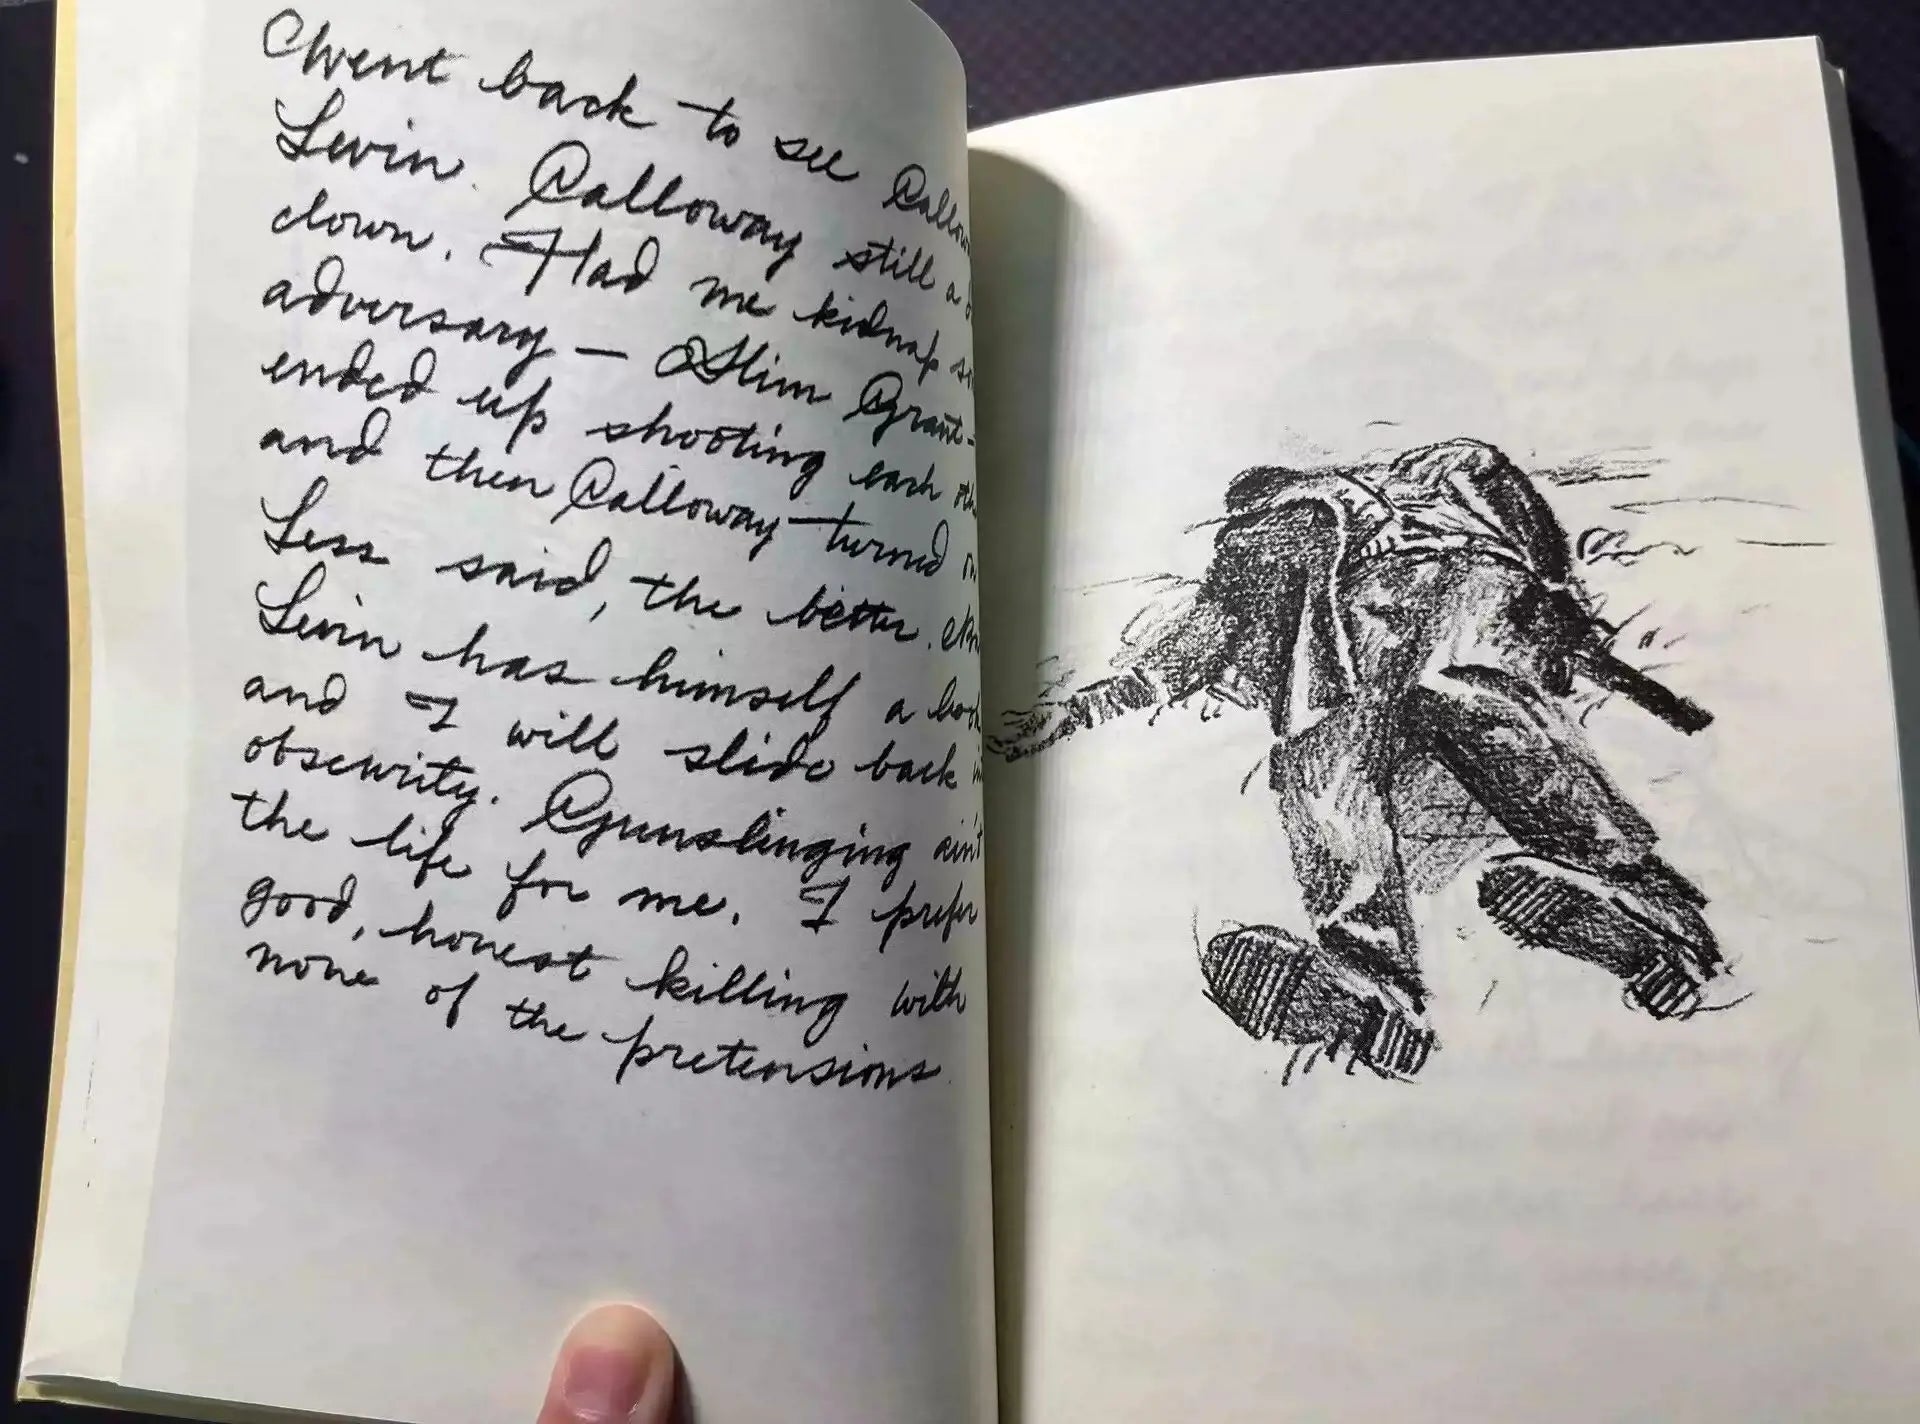 Went back to see
Levin. Calloway still a
clown. Had me kidnap
adversary — Slim Grant –
ended up shooting each
and then Calloway turned
Less said, the better.
Levin has himself a
and I will slide back
obscurity. Gunslinging ain't
the life for me. I prefer
good, honest killing with
none of the pretensions.